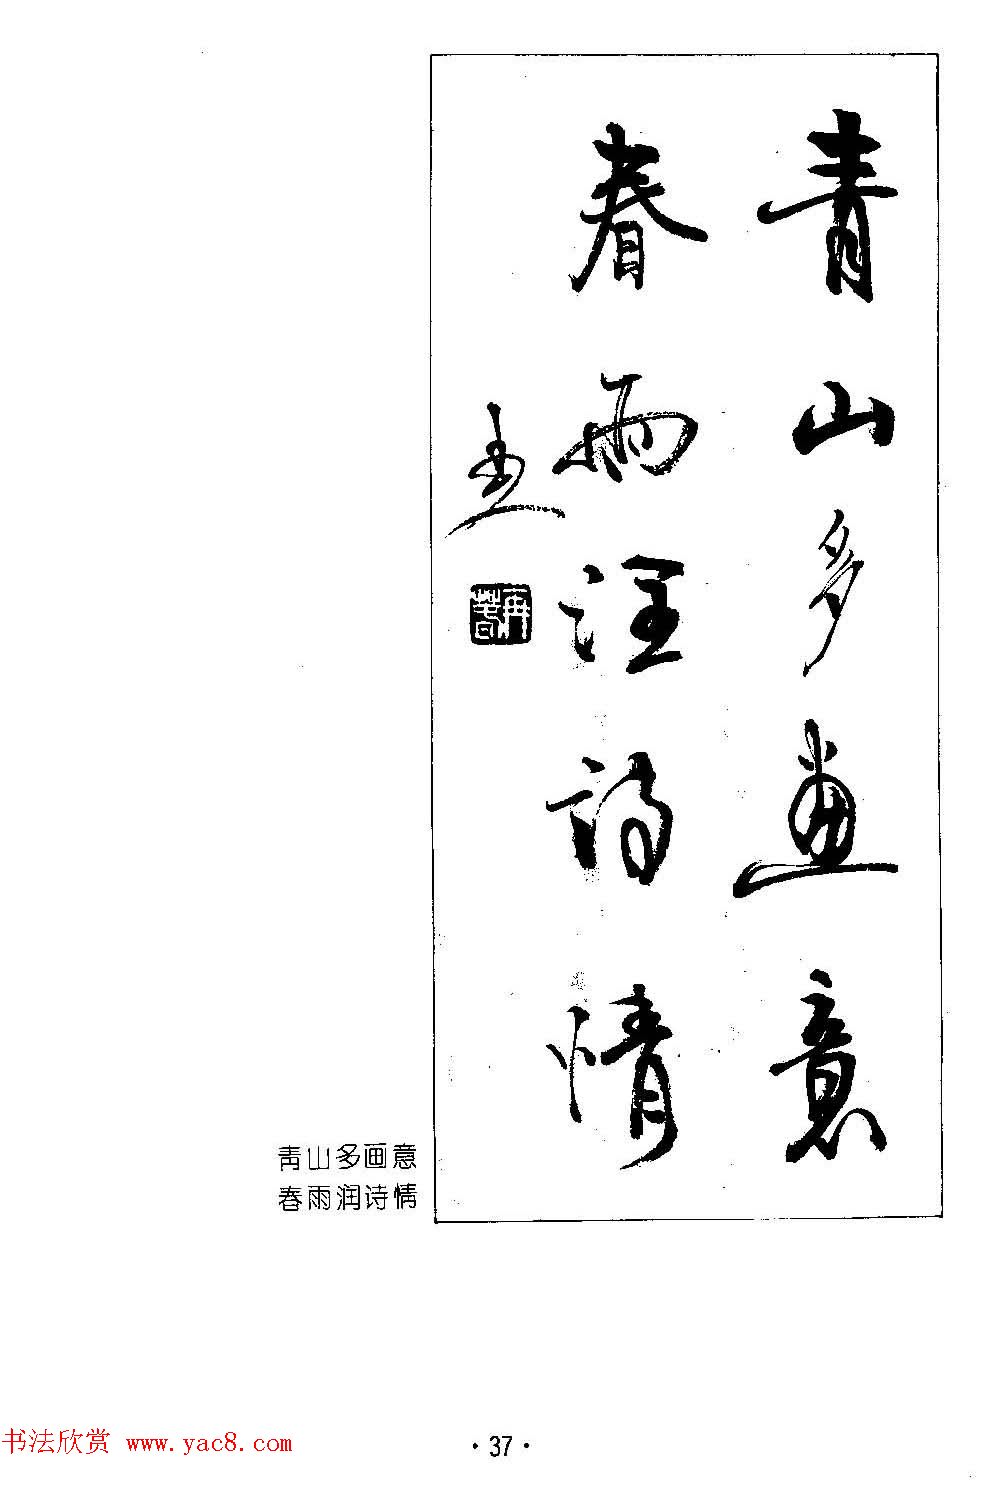 青山多畫意
春雨潤詩情
青山多画意
春雨润诗情
书法欣赏 www.yac8.com
·37·